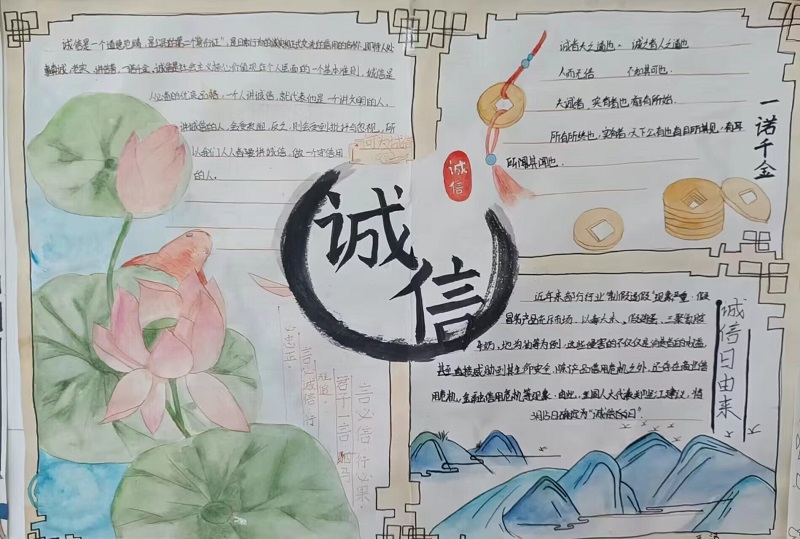 诚信是一个道德范畴，是公民的第二个"身份证"，是日常行为的诚实和正式交流的信用的合称。即待人处
事真诚、老实、讲信誉，一诺千金，诚信是社会主义核心价值观在个人层面的一个基本准则，诚信是
人必备的优良品格，一个人讲诚信，就代表他是一个讲文明的人。
讲诚信的人，会受欢迎，反之，则会受到批评与忽视，所
以我们人人都要讲诚信，做一个诚信用
的人。
诚信
言必信 行必果
君子一言
诚信
诚者天之道也。诚之者人之道也
人而无信 不知其可也。
夫诚者，实有者也，前有所始，
所有所终也，实有者，天下公有也，有目所共见，有耳
所闻其闻也。
一诺千金
近年来各行行业"制假造假"现象严重，假
冒名产品充斥市场，以毒大米、假鸡蛋、三聚氰胺
牛奶、地沟油等为例，这些侵害的不仅仅是消费者的利益，
甚至直接威胁到其生命安全，除产品信用危机之外，还存在商业信
用危机，金融信用危机等现象。由此，全国人大代表关
3月15日确定为"诚信日"。
诚信日由来